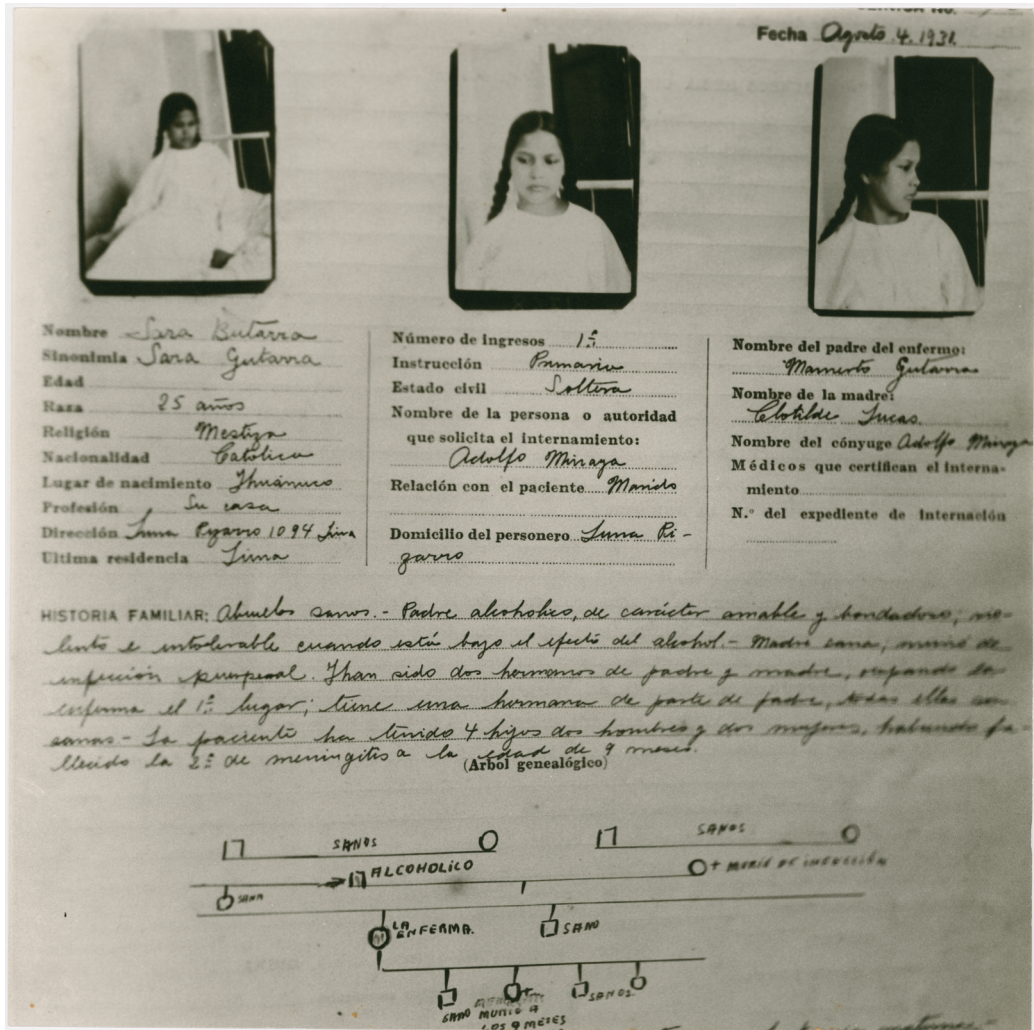 Fecha Agosto 4. 1931
Nombre Sara Butarra
Sinonimia Sara Gutarra
Edad
Raza 25 años
Religión Mestiza
Nacionalidad Católica
Lugar de nacimiento Huánuco
Profesión Su casa
Dirección Luna Pizarro 1094 Lima
Ultima residencia Lima
Número de ingresos 1º
Instrucción Primaria
Estado civil Soltera
Nombre de la persona o autoridad
que solicita el internamiento:
Adolfo Minaya
Relación con el paciente Marido
Domicilio del personero Luna Pi-
zarro
Nombre del padre del enfermo:
Mamerto Gutarra
Nombre de la madre:
Clotilde Lucas
Nombre del cónyuge Adolfo Minaya
Médicos que certifican el interna-
miento
N.º del expediente de internación
HISTORIA FAMILIAR: Abuelos sanos.- Padre alcoholico, de carácter amable y bondadoso; vio-
lento e intolerable cuando está bajo el efecto del alcohol.- Madre sana, murió de
infección puerperal. Han sido dos hermanos de padre y madre, ocupando la
enferma el 1º lugar; tiene una hermana de parte de padre, todas ellas son
sanas.- La paciente ha tenido 4 hijos dos hombres y dos mujeres, habiendo fa-
llecido la 2º de meningitis a la edad de 9 meses.
(Arbol genealógico)
SANOS SANOS
ALCOHOLICO + MURIÓ DE INFECCIÓN
SANA
LA
ENFERMA. SANO
SANO MURIO A SANOS
LOS 9 MESES